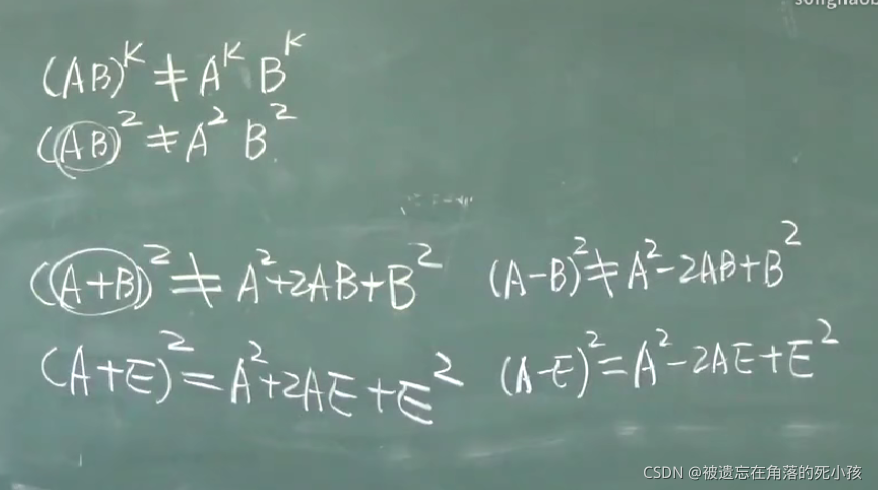 (AB)^K ≠ A^K B^K
(AB)² ≠ A² B²
(A+B)² ≠ A²+2AB+B² (A-B)² ≠ A²-2AB+B²
(A+E)² = A²+2AE+E² (A-E)² = A²-2AE+E²
CSDN @被遗忘在角落的死小孩